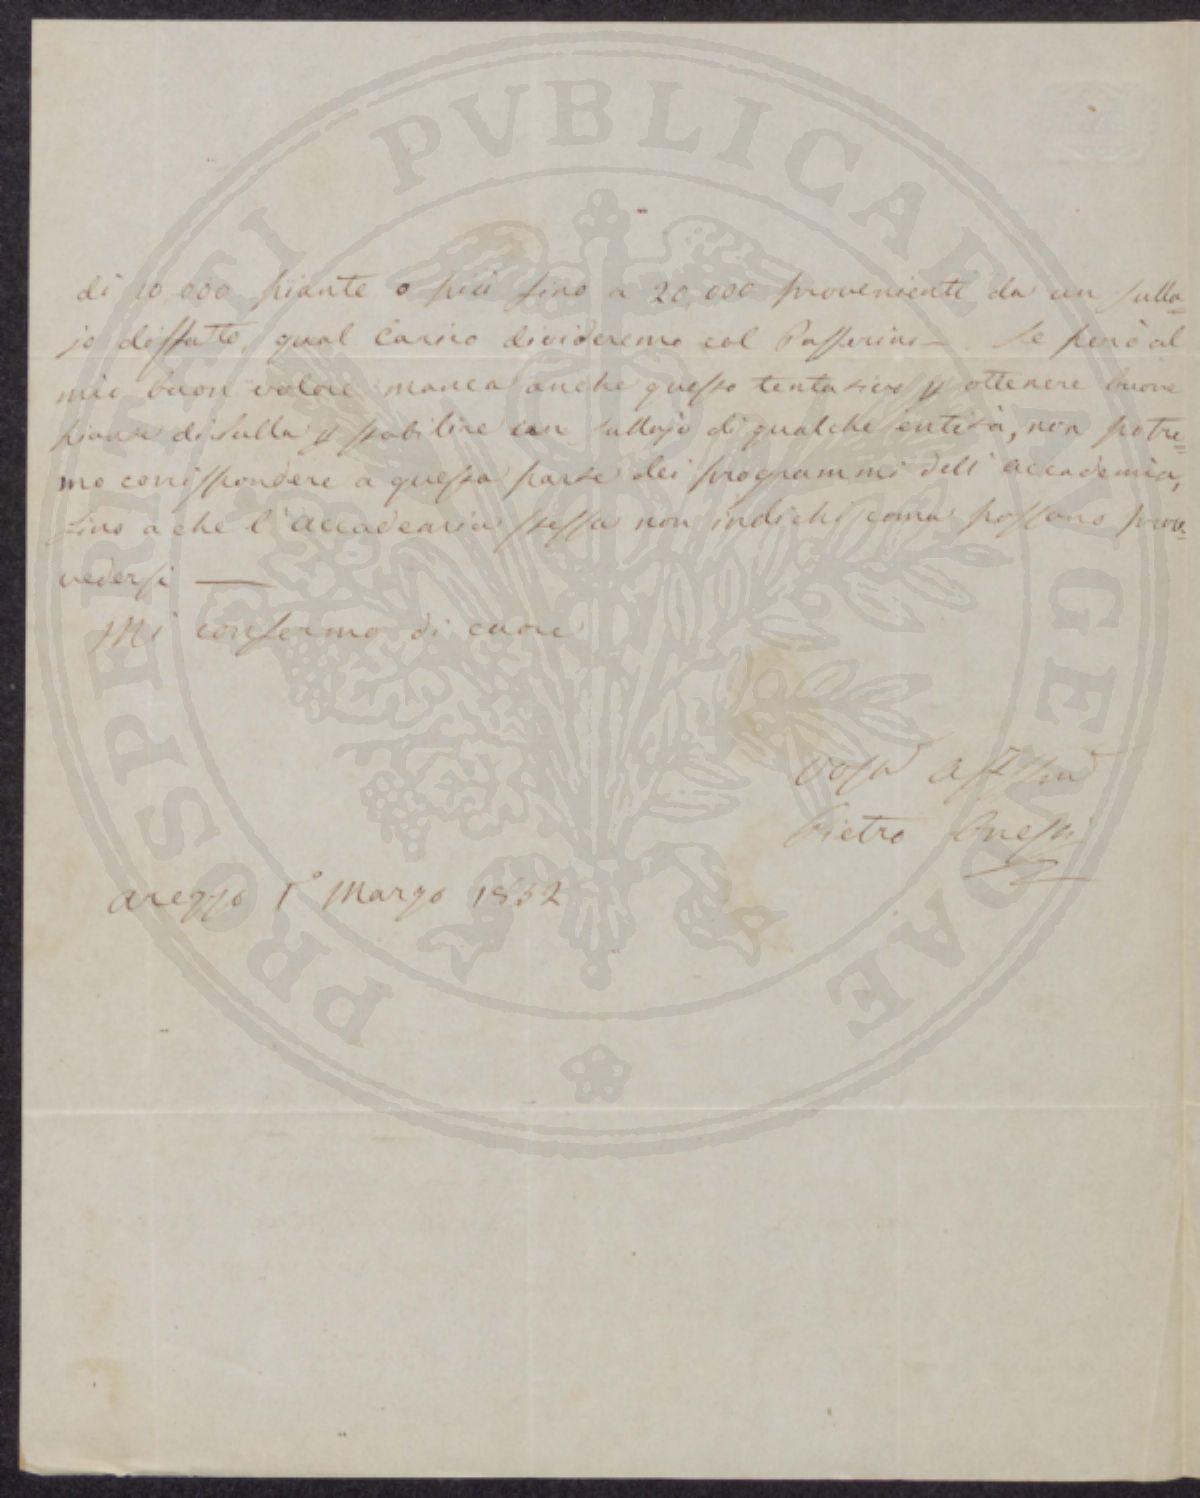 PROSPERITATI PVBLICAE AVGENDAE
di 10,000 piante o più fino a 20,000 proveniente da un sulla=
jo disfatto, qual carico divideremo col Passerini –. Se però al
mio buon volere manca anche questo tentativo p ottenere buone
piante di sulla p stabilire un sullajo di qualche entità, non potre=
mo corrispondere a questa parte dei programmi dell'accademia,
fino a che l'accademia stessa non indichi come possano prov=
vedersi —
Mi confermo di cuore
Vostro Aff.mo
Pietro
Arezzo 1° Marzo 1832